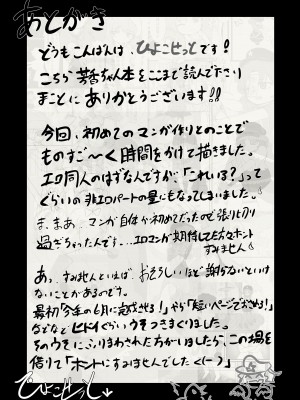 あとがき
どうもこんばんは、ひよこせっとです!
こちら芳香ちゃん本をここまで読んで下さり
まことにありがとうございます!!
今回、初めてのマンガ作りとのことで
ものすご〜く時間をかけて描きました。
エロ同人のはずなんですが「これいる?」って
ぐらいの非エロパートの量にもなってしまいました。
ま、まあ、マンガ自体が初めてだったので張り切り
過ぎちゃったんです…エロマンガ期待してた方ホント
すみません
あっ、すみませんといえば、おそろしいほど謝らないといけ
ないことがあるのです。
最初「今年の6月に完成させる!」やら「短いページでおさめる!」
などなどヒドイぐらいウソつきまくりました。
そのウソにふりまわされた方がいましたら、この場を
借りて「ホントにすみませんでした<(_ _)」
ひよこせっと